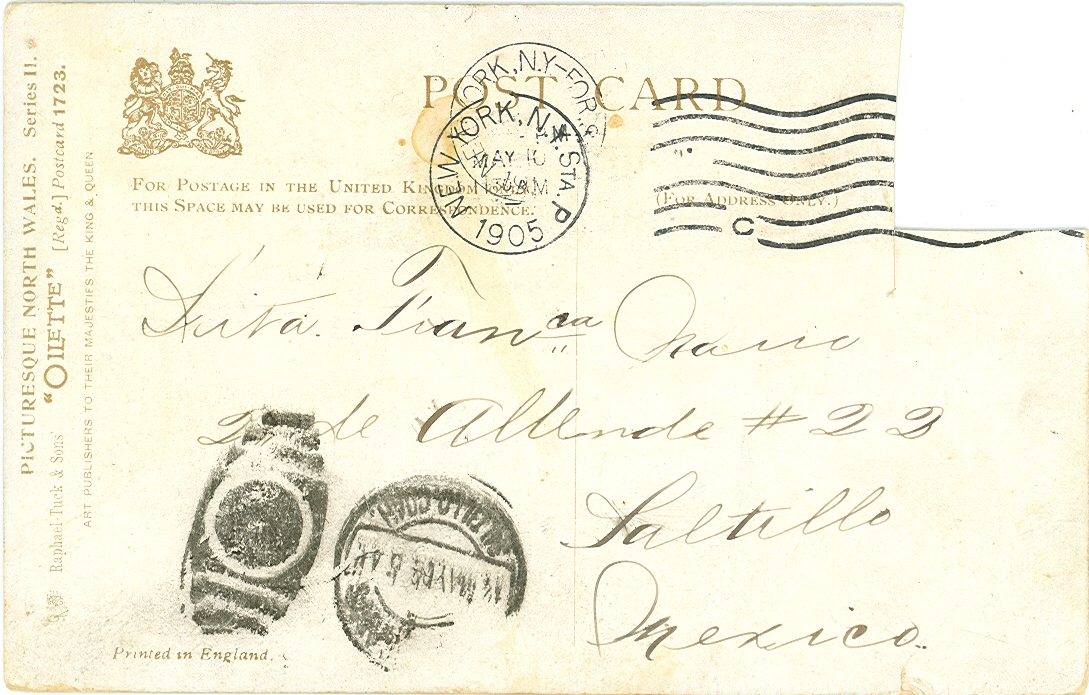 PICTURESQUE NORTH WALES. Series II.
"OILETTE" [Regd.] Postcard 1723.
Raphael Tuck & Sons'
ART PUBLISHERS TO THEIR MAJESTIES THE KING & QUEEN
POST CARD
FOR POSTAGE IN THE UNITED KINGDOM ONLY
THIS SPACE MAY BE USED FOR CORRESPONDENCE.
(FOR ADDRESS ONLY.)
NEW YORK, N.Y. STA. P
MAY 10
1905
YORK, N.Y.
C
Srita. Franca Narro
2a de Allende # 22
Saltillo
Mexico.
SALTILLO COAH
Printed in England.